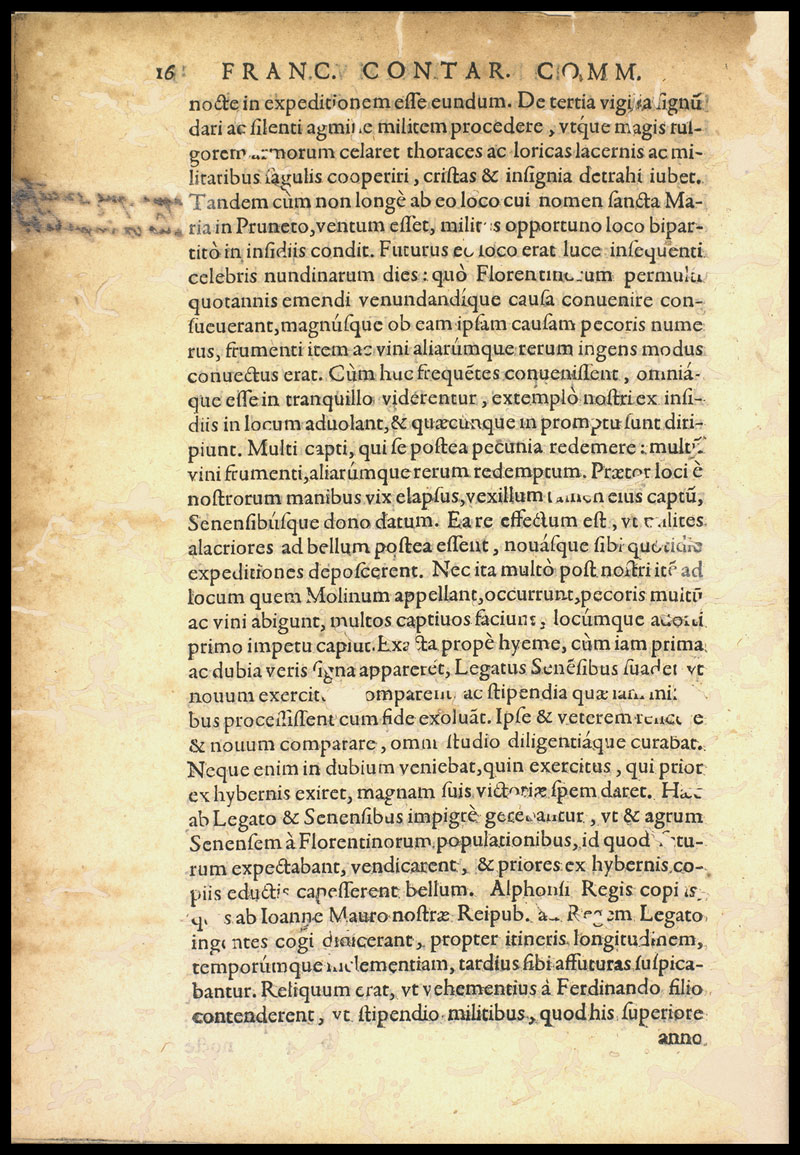 16 FRANC. CONTAR. COMM.
nocte in expeditionem esse eundum. De tertia signū
dari ac silenti agmine militem procedere, vtq́ue magis ful-
gorem armorum celaret thoraces ac loricas lacernis ac mi-
litaribus sagulis cooperiri, cristas & insignia detrahi iubet.
Tandem cùm non longè ab eo loco cui nomen sancta Ma-
ria in Pruneto, ventum esset, milites opportuno loco bipar-
titò in insidiis condit. Futurus eo loco erat luce insequenti
celebris nundinarum dies: quò Florentinorum permulti
quotannis emendi venundandíque causa conuenire con-
sueuerant, magnúsque ob eam ipsam causam pecoris nume
rus, frumenti item ac vini aliarúmque rerum ingens modus
conuectus erat. Cùm huc frequētes conuenissent, omniá-
que esse in tranquillo viderentur, extemplò nostri ex insi-
diis in locum aduolant, & quæcunque in promptu sunt diri-
piunt. Multi capti, qui se postea pecunia redemere: multū
vini frumenti, aliarúmque rerum redemptum. Prætor loci è
nostrorum manibus vix elapsus, vexillum tamen eius captū,
Senensibúsque dono datum. Ea re effectum est, vt milites
alacriores ad bellum postea essent, nouásque sibi quotidie
expeditiones deposcerent. Nec ita multò post nostri itē ad
locum quem Molinum appellant, occurrunt, pecoris multū
ac vini abigunt, multos captiuos faciunt, locúmque adorti
primo impetu capiūt. Exacta propè hyeme, cùm iam prima
ac dubia veris signa apparerēt, Legatus Senēsibus suadet vt
nouum comparent, ac stipendia quæ iam
bus processissent cum fide exoluāt. Ipse & veterem
& nouum comparare, omni studio diligentiáque curabat.
Neque enim in dubium veniebat, quin exercitus, qui prior
ex hybernis exiret, magnam suis victoriæ spem daret. Hæc
ab Legato & Senensibus impigrè gerebantur, vt & agrum
Senensem à Florentinorum populationibus, id quod futu-
rum expectabant, vendicarent, & priores ex hybernis co-
piis eductis capesserent bellum. Alphonsi Regis copias,
ab Ioanne Mauro nostræ Reipub. ad Regem Legato
ingentes cogi didicerant, propter itineris longitudinem,
temporúmque inclementiam, tardius sibi affuturas suspica-
bantur. Reliquum erat, vt vehementius à Ferdinando filio
contenderent, vt stipendio militibus, quod his superiore
anno